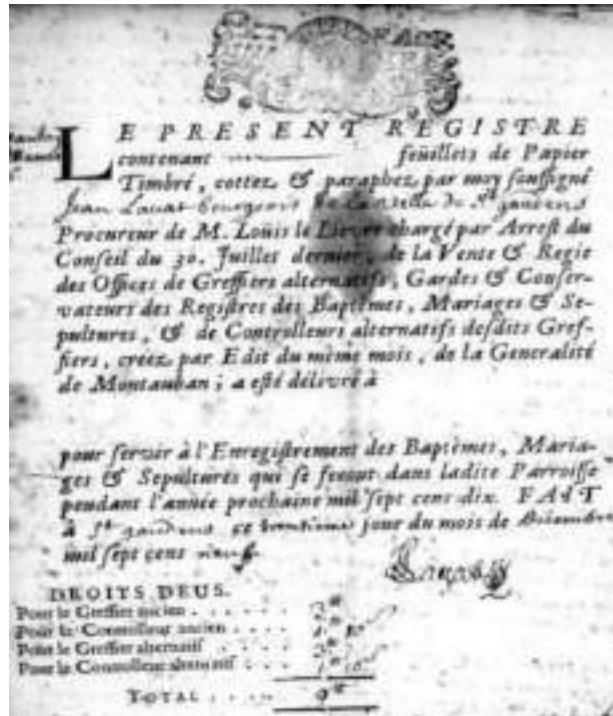 LE PRESENT REGISTRE
contenant feüillets de Papier
Timbré, cottez & paraphez par moy soussigné
Jean Bourgeois de St gaudens
Procureur de M. Loüis le chargé par Arrest du
Conseil du 30. Juillet dernier, de la Vente & Regie
des Offices de Greffiers alternatifs, Gardes & Conser-
vateurs des Registres des Baptêmes, Mariages & Se-
pultures, & de Controlleurs alternatifs desdits Gref-
fiers, creez par Edit du même mois, de la Generalité
de Montauban ; a esté délivré à
pour servir à l'Enregistrement des Baptêmes, Maria-
ges & Sepultures qui se feront dans ladite Parroisse
pendant l'année prochaine mil sept cens dix. FAIT
à St gaudens ce trentieme jour du mois de Decembre
mil sept cens neuf
DROITS DEUS.
Pour le Greffier ancien . . . . . .
Pour le Controlleur ancien . . . .
Pour le Greffier alternatif . . . .
Pour le Controlleur alternatif . . .
TOTAL . . . . 9